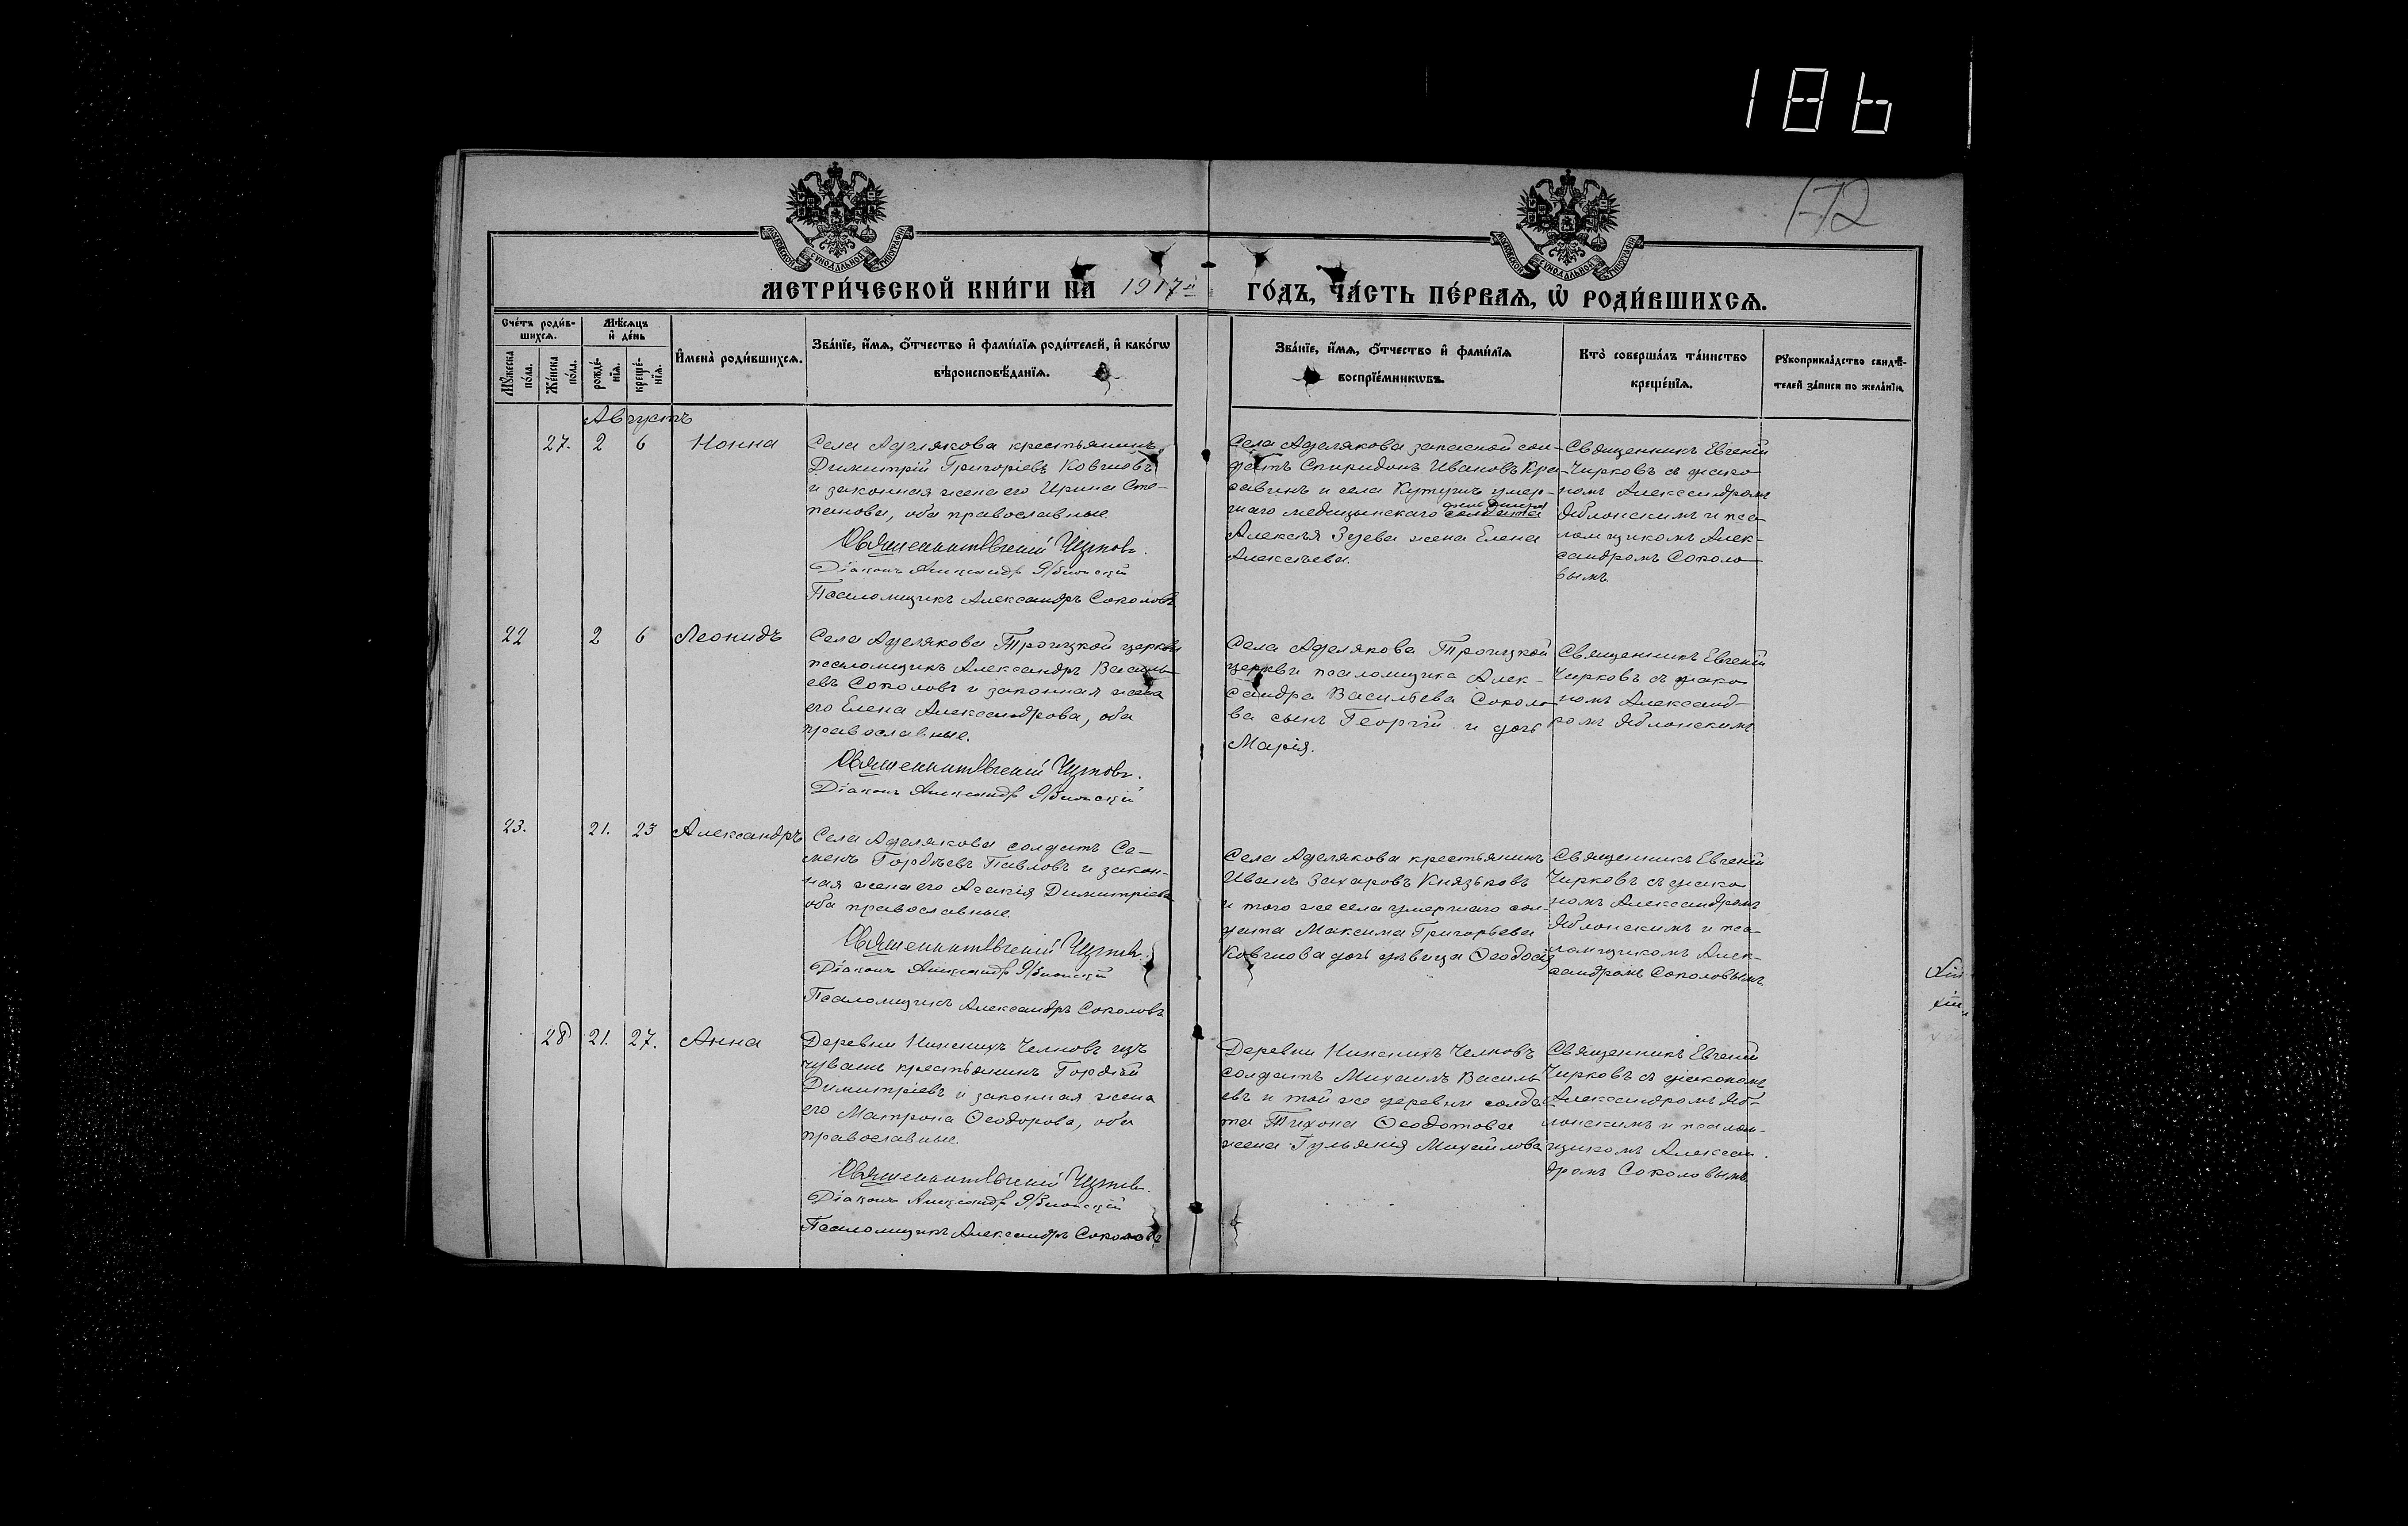 186
172
МОСКОВСКОЙ СѴНОДАЛЬНОЙ ТИПОГРАФІИ
МОСКОВСКОЙ СѴНОДАЛЬНОЙ ТИПОГРАФІИ
МЕТРИ́ЧЕСКОЙ КНИ́ГИ НА 1917й
ГО́ДЪ, ЧА́СТЬ ПЕ́РВАѦ, Ѡ҆ РОДИ́ВШИХСѦ.
Сче́тъ роди́в-
шихсѧ.
Мꙋ́жеска по́ла.
Же́нска по́ла.
Мѣ́сѧцъ
и҆ де́нь
рожде́-
нїѧ.
креще́-
нїѧ.
И҆мена̀ роди́вшихсѧ.
Зва́нїе, и҆́мѧ, ѻ҆́тчество и҆ фами́лїѧ роди́телей, и҆ како́гѡ
вѣроисповѣ́данїѧ.
Зва́нїе, и҆́мѧ, ѻ҆́тчество и҆ фами́лїѧ
воспрїе́мникѡвъ.
Кто̀ соверша́лъ та́инство
креще́нїѧ.
Рꙋкоприкла́дство свидѣ́-
телей за́писи по жела́нїю.
Августъ
27.
2
6
Нонна
Села Аделякова крестьянинъ
Димитрій Григоріевъ Ковшовъ
и законная жена его Ирина Сте-
панова, оба православные.
Священникъ Евгеній Чирковъ.
Діаконъ Александръ Яблонскій
Псаломщикъ Александръ Соколовъ
Села Аделякова запасной сол-
датъ Спиридонъ Ивановъ Кра-
савинъ и села Кутуши умер-
шаго медицынскаго фельдшера
Алексѣя Зуева жена Елена
Алексѣева.
Священникъ Евгеній
Чирковъ съ діако-
номъ Александромъ
Яблонскимъ и пса-
ломщикомъ Алек-
сандромъ Соколо-
вымъ.
22
2
6
Леонидъ
Села Аделякова Троицкой церкви
псаломщикъ Александръ Василь-
евъ Соколовъ и законная жена
его Елена Александрова, оба
православные.
Священникъ Евгеній Чирковъ.
Діаконъ Александръ Яблонскій
Села Аделякова Троицкой
церкви псаломщика Алек-
сандра Васильева Соколо-
ва сынъ Георгій и дочь
Марія.
Священникъ Евгеній
Чирковъ съ діако-
номъ Александ-
ромъ Яблонскимъ
23.
21.
23
Александръ
Села Аделякова солдатъ Се-
менъ Гордѣевъ Павловъ и закон-
ная жена его Агакія Димитріева
оба православные.
Священникъ Евгеній Чирковъ.
Діаконъ Александръ Яблонскій
Псаломщикъ Александръ Соколовъ
Села Аделякова крестьянинъ
Иванъ Захаровъ Князьковъ
и того же села умершаго сол-
дата Максима Григорьева
Ковшова дочь дѣвица Ѳеодосія
Священникъ Евгеній
Чирковъ съ діако-
номъ Александромъ
Яблонскимъ и пса-
ломщикомъ Алек-
сандромъ Соколовымъ
28
21.
27.
Анна
Деревни Нижнихъ Челновъ изъ
чувашъ крестьянинъ Гордѣй
Димитріевъ и законная жена
его Матрона Ѳеодорова, оба
православные.
Священникъ Евгеній Чирковъ.
Діаконъ Александръ Яблонскій
Псаломщикъ Александръ Соколовъ
Деревни Нижнихъ Челновъ
солдатъ Михаилъ Василь-
евъ и той же деревни солда-
та Тихона Ѳеодотова
жена Гульянія Михайлова
Священникъ Евгеній
Чирковъ съ діакономъ
Александромъ Яб-
лонскимъ и псалом-
щикомъ Алексан-
дромъ Соколовымъ